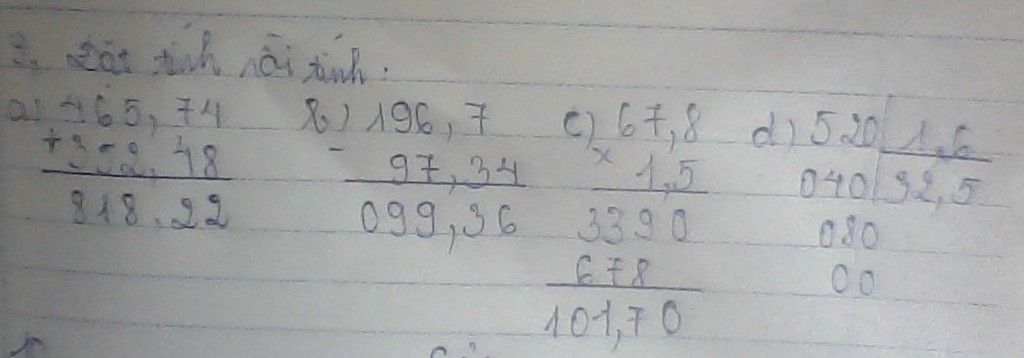 3, Đặt tính rồi tính:
a) 465,74 b) 196,7 c) 67,8 d) 520 1,6
+ 352,48 - 97,34 x 1,5 040 32,5
818,22 099,36 3390 080
678 00
101,70